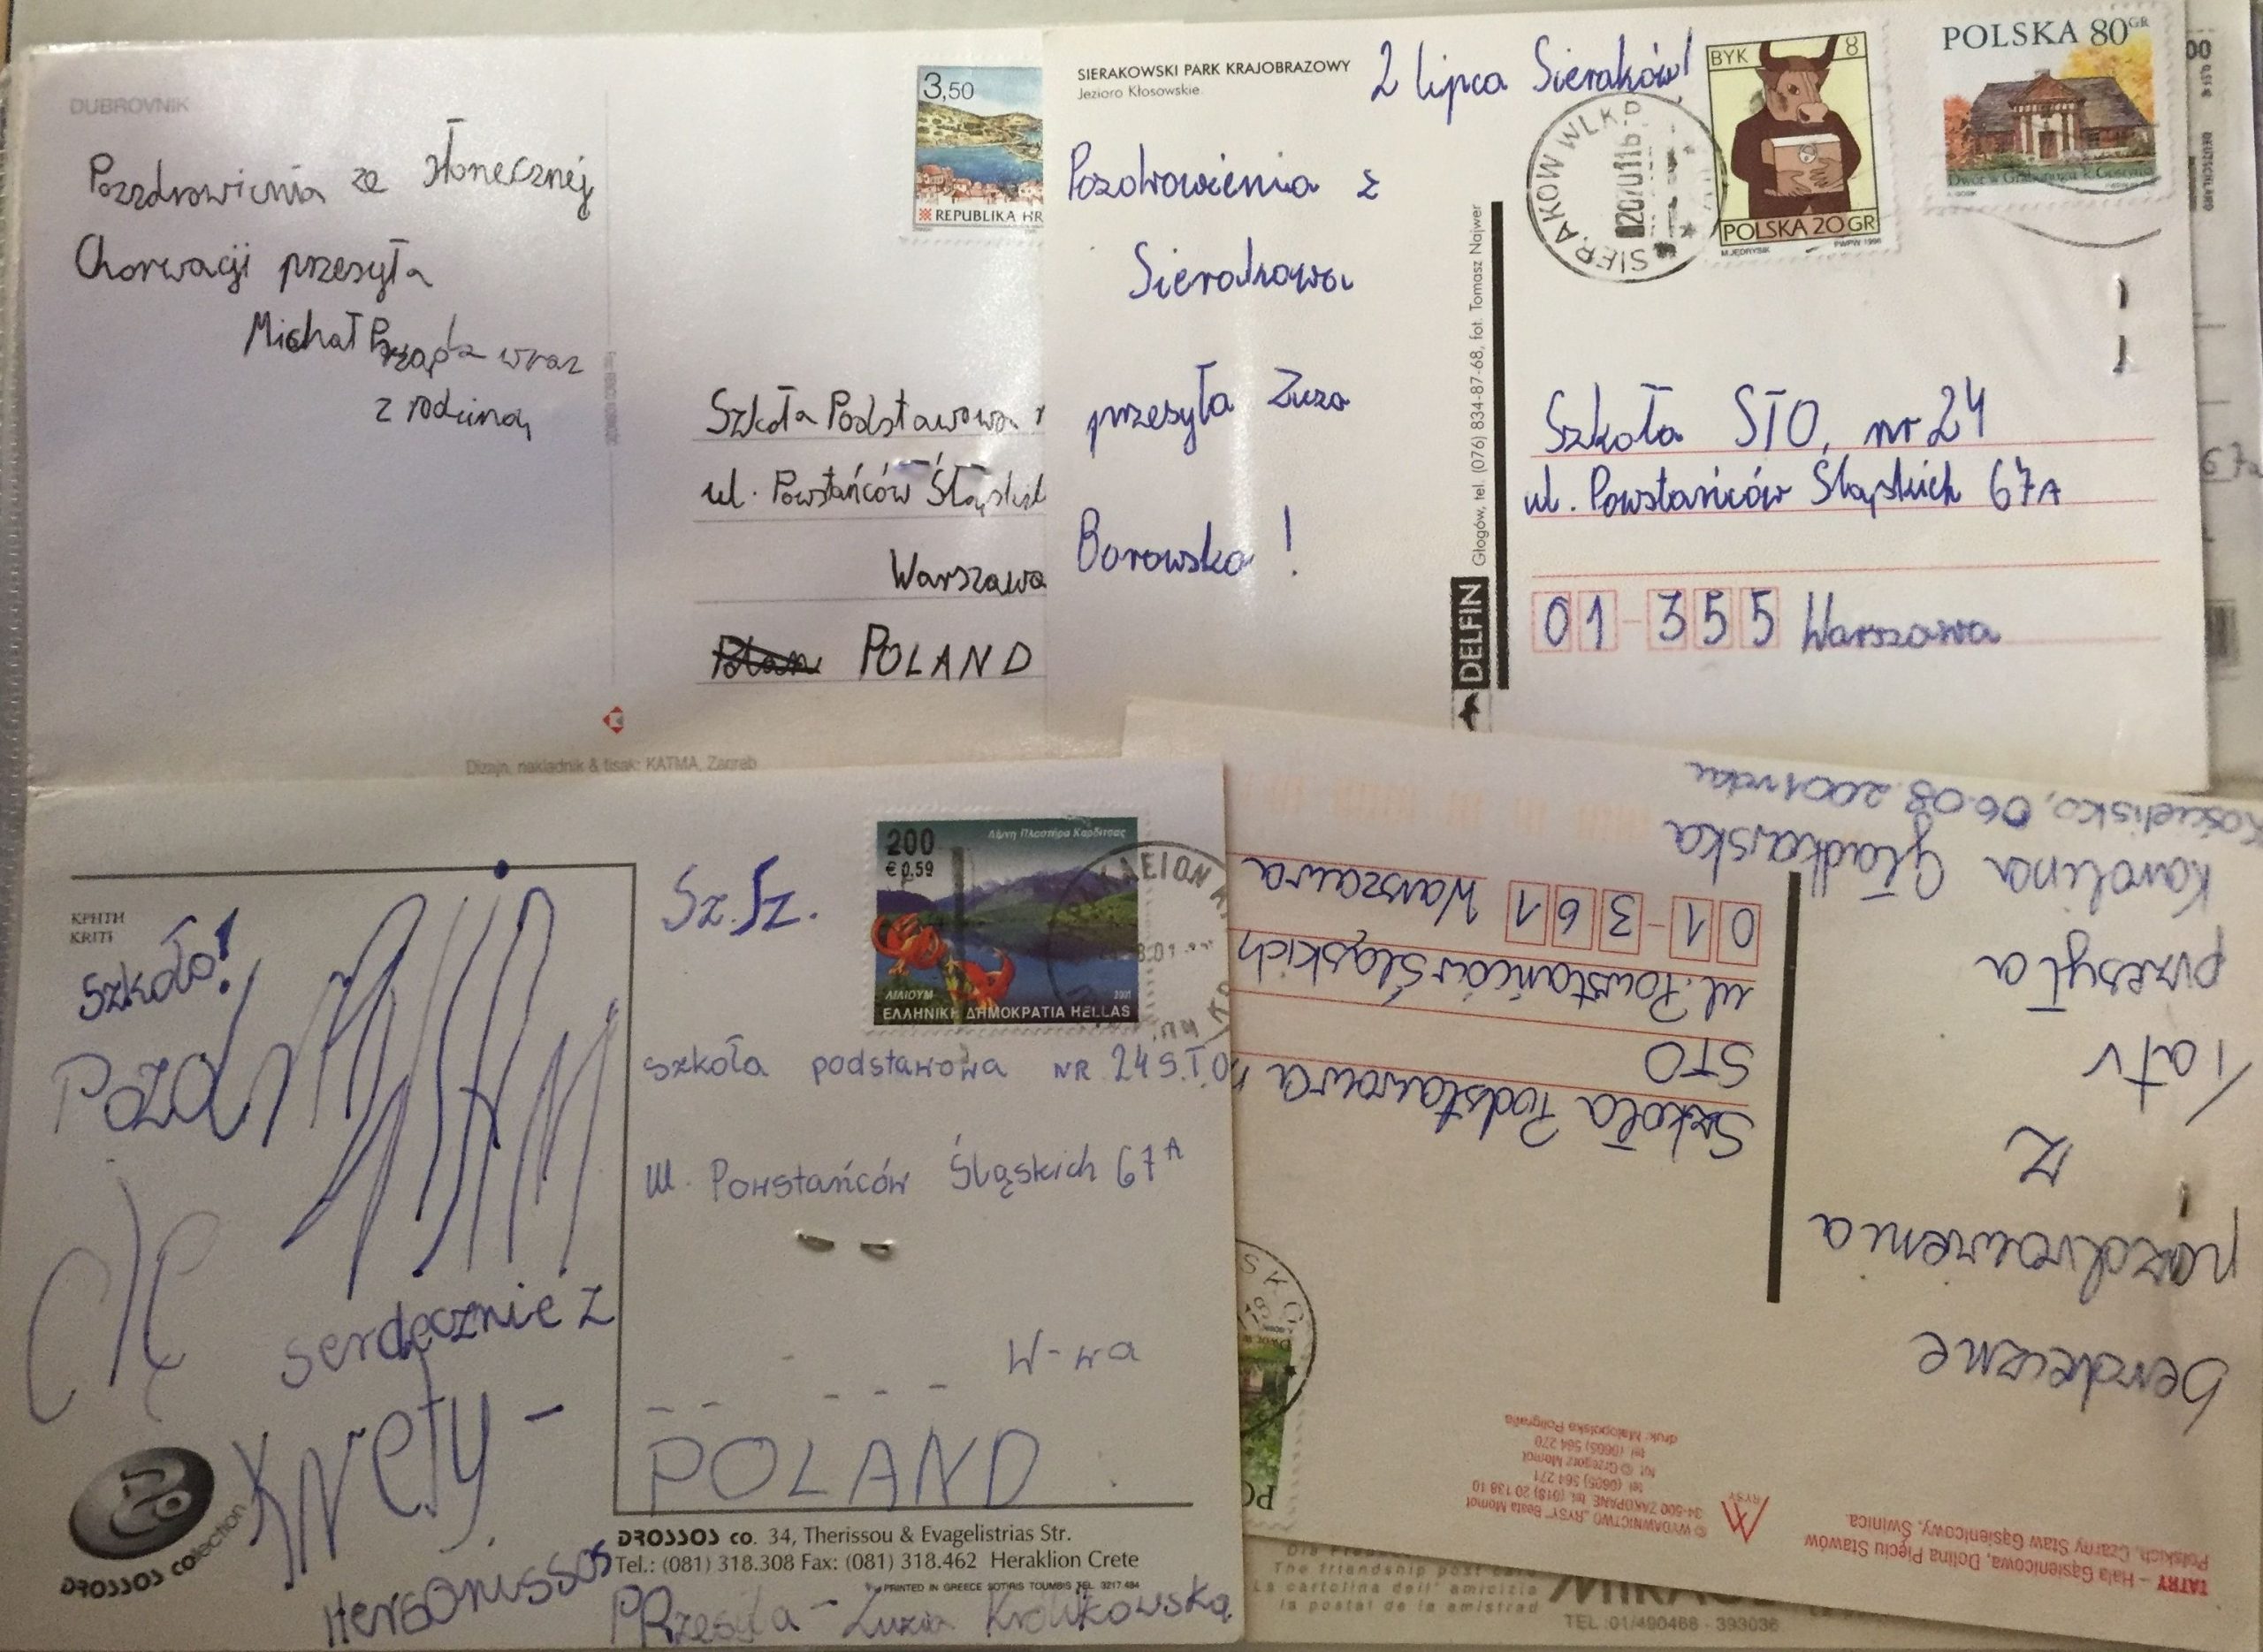 DUBROVNIK
Pozdrowienia ze słonecznej
Chorwacji przesyła
Michał
wraz
z rodziną
3,50
REPUBLIKA HR
Szkoła Podstawowa
ul. Powstańców
Warszawa
POLAND
Dizajn, nakladnik & tisak: KATMA, Zagreb
SIERAKOWSKI PARK KRAJOBRAZOWY
Jezioro Kłosowskie
2 lipca Sieraków!
Pozdrowienia z
Sierakowa
przesyła Zuza
Borowska!
Głogów, tel. (076) 834-87-68, fot. Tomasz Najwer
DELFIN
SIERAKÓW WLKP
BYK 8
POLSKA 20 GR
M.JĘDRYSIK PWPW 1996
POLSKA 80 GR
Szkoła STO, nr 24
ul. Powstańców Śląskich 67A
01-355 Warszawa
DEUTSCHLAND
67a
ΚΡΗΤΗ
KRITI
Szkoło!
Pozd
Cię
serdecznie z
Krety -
Hersonissos
Przesyła - Zuzia Królikowska
Sz. Sz.
200
€ 0,59
Λίμνη Πλαστήρα Καρδίτσας
ΛΙΛΙΟΥΜ 2001
ΕΛΛΗΝΙΚΗ ΔΗΜΟΚΡΑΤΙΑ HELLAS
szkoła podstawowa NR 24 S.T.O
ul. Powstańców Śląskich 67A
W-wa
POLAND
DROSSOS collection
DROSSOS co. 34, Therissou & Evagelistrias Str.
Tel.: (081) 318.308 Fax: (081) 318.462 Heraklion Crete
PRINTED IN GREECE SOTIRIS TOUMBIS TEL. 3217.484
TATRY – Hala Gąsienicowa, Dolina Pięciu Stawów
Polskich, Czarny Staw Gąsienicowy, Świnica.
RYSY
© WYDAWNICTWO „RYSY” Beata Momot
34-500 ZAKOPANE, tel. (018) 20 138 10
tel. (0605) 564 271
fot. © Grzegorz Momot
tel. (0605) 564 270
druk: Małopolska Poligrafia
Serdeczne
pozdrowienia
z
Tatr
przesyła
Karolina Gładkowska
Kościelisko, 06.08.2001 roku
Szkoła Podstawowa
STO
ul. Powstańców Śląskich
01-361 Warszawa
The friendship post
La cartolina dell' amicizia
la postal de la amistrad
TEL.:01/490468 - 393036